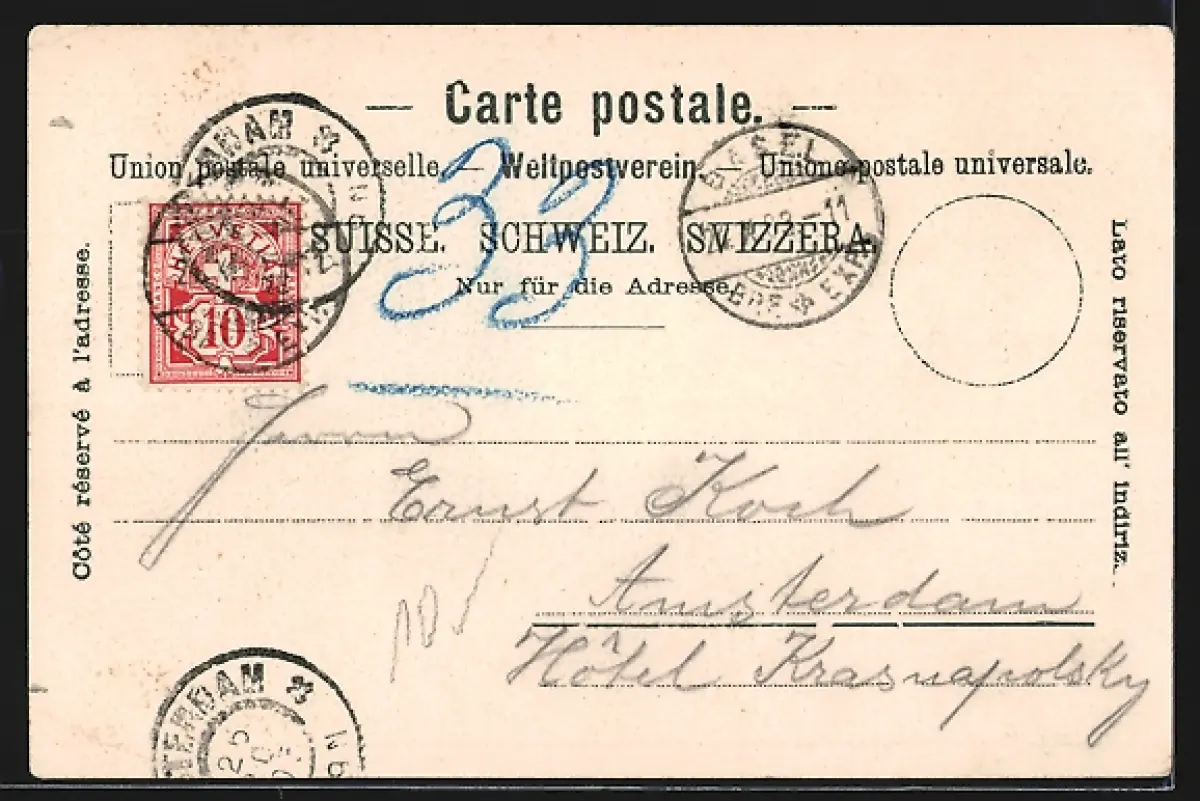 — Carte postale. —
Union postale universelle. — Weltpostverein. — Unione postale universale.
SUISSE. SCHWEIZ. SVIZZERA.
Nur für die Adresse.
Côté réservé à l'adresse.
Lato riservato all' indiriz.
HELVETIA
10
33
BASEL
-11
BRF EXP
AM
Herrn
Ernst Koch
Amsterdam
Hôtel Krasnapolsky
TERDAM
25